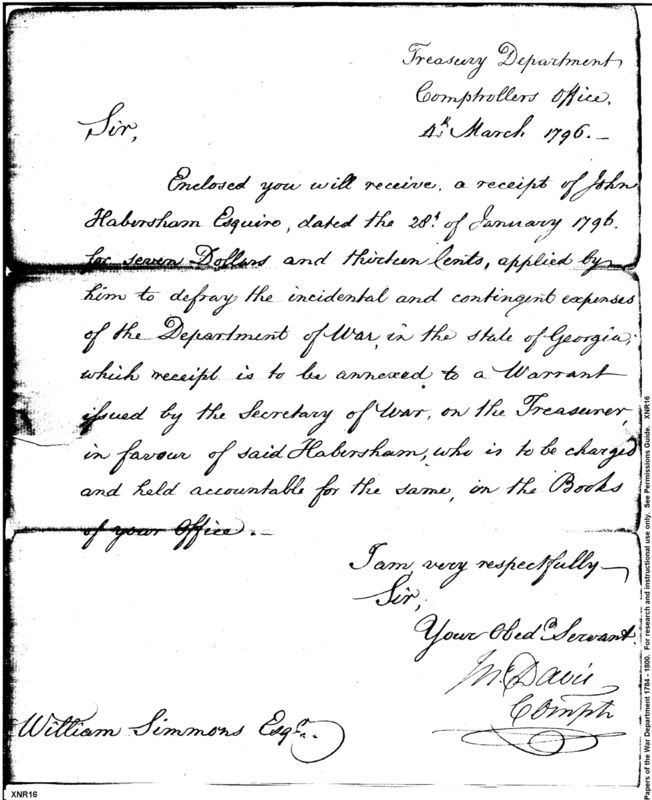 Treasury Department
Comptrollers Office,
4th March 1796.—
Sir,
Enclosed you will receive, a receipt of John
Habersham Esquire, dated the 28th of January 1796.
for seven Dollars and thirteen Cents, applied by
him to defray the incidental and contingent expenses
of the Department of War, in the state of Georgia;
which receipt is to be annexed to a Warrant
issued by the Secretary of War, on the Treasurer,
in favour of said Habersham, who is to be charged
and held accountable for the same, in the Books
of your Office.—
I am, very respectfully
Sir,
Your Obedt Servant.
Jno Davis
Compt
William Simmons Esqr.
XNR16
Papers of the War Department 1784 - 1800. For research and instructional use only. See Permissions Guide. XNR16